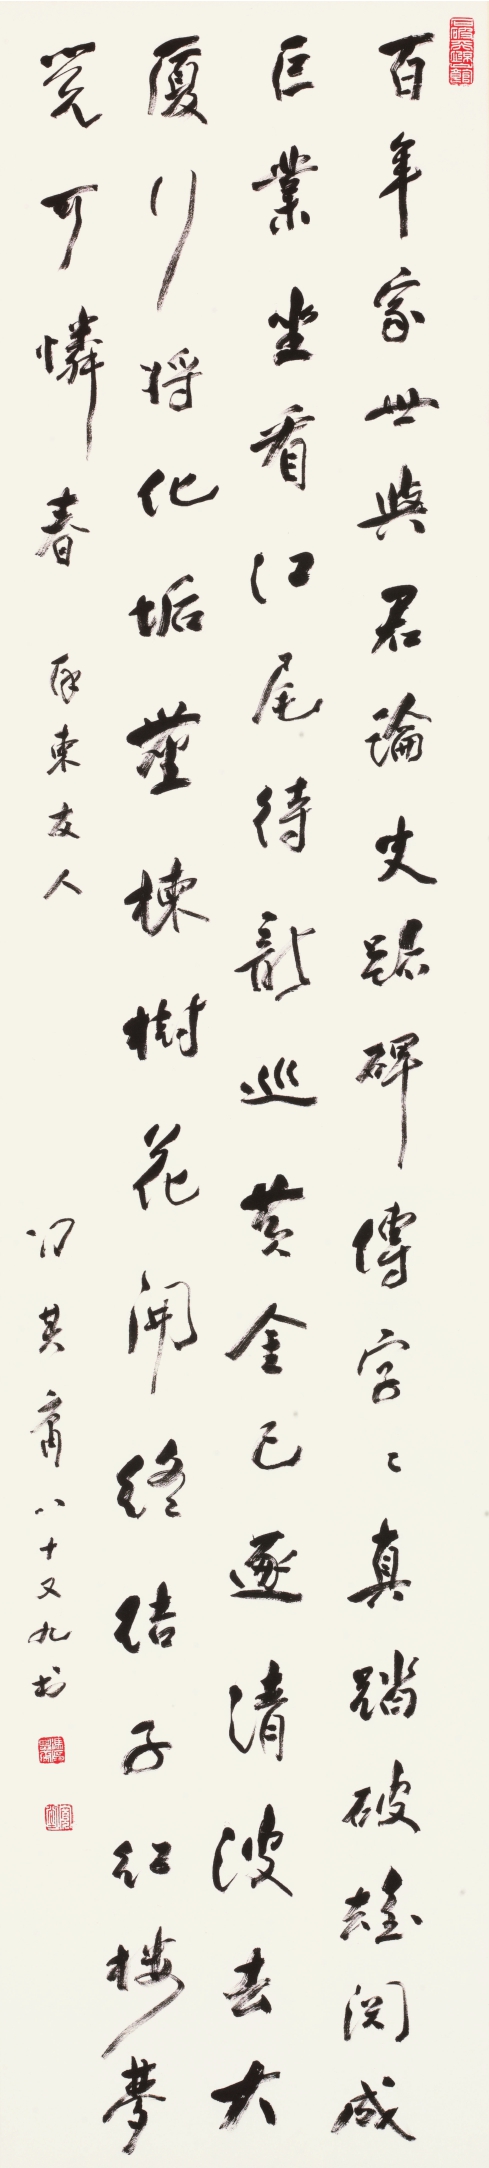 百年家世與君論史跡碑傳字々真踏破雄關成
巨業坐看江尾待龍巡黄金已逐清波去大
厦行將化垢塵楝樹花開終結子紅樓夢
覺可憐春 柬友人
馮其庸八十又九書